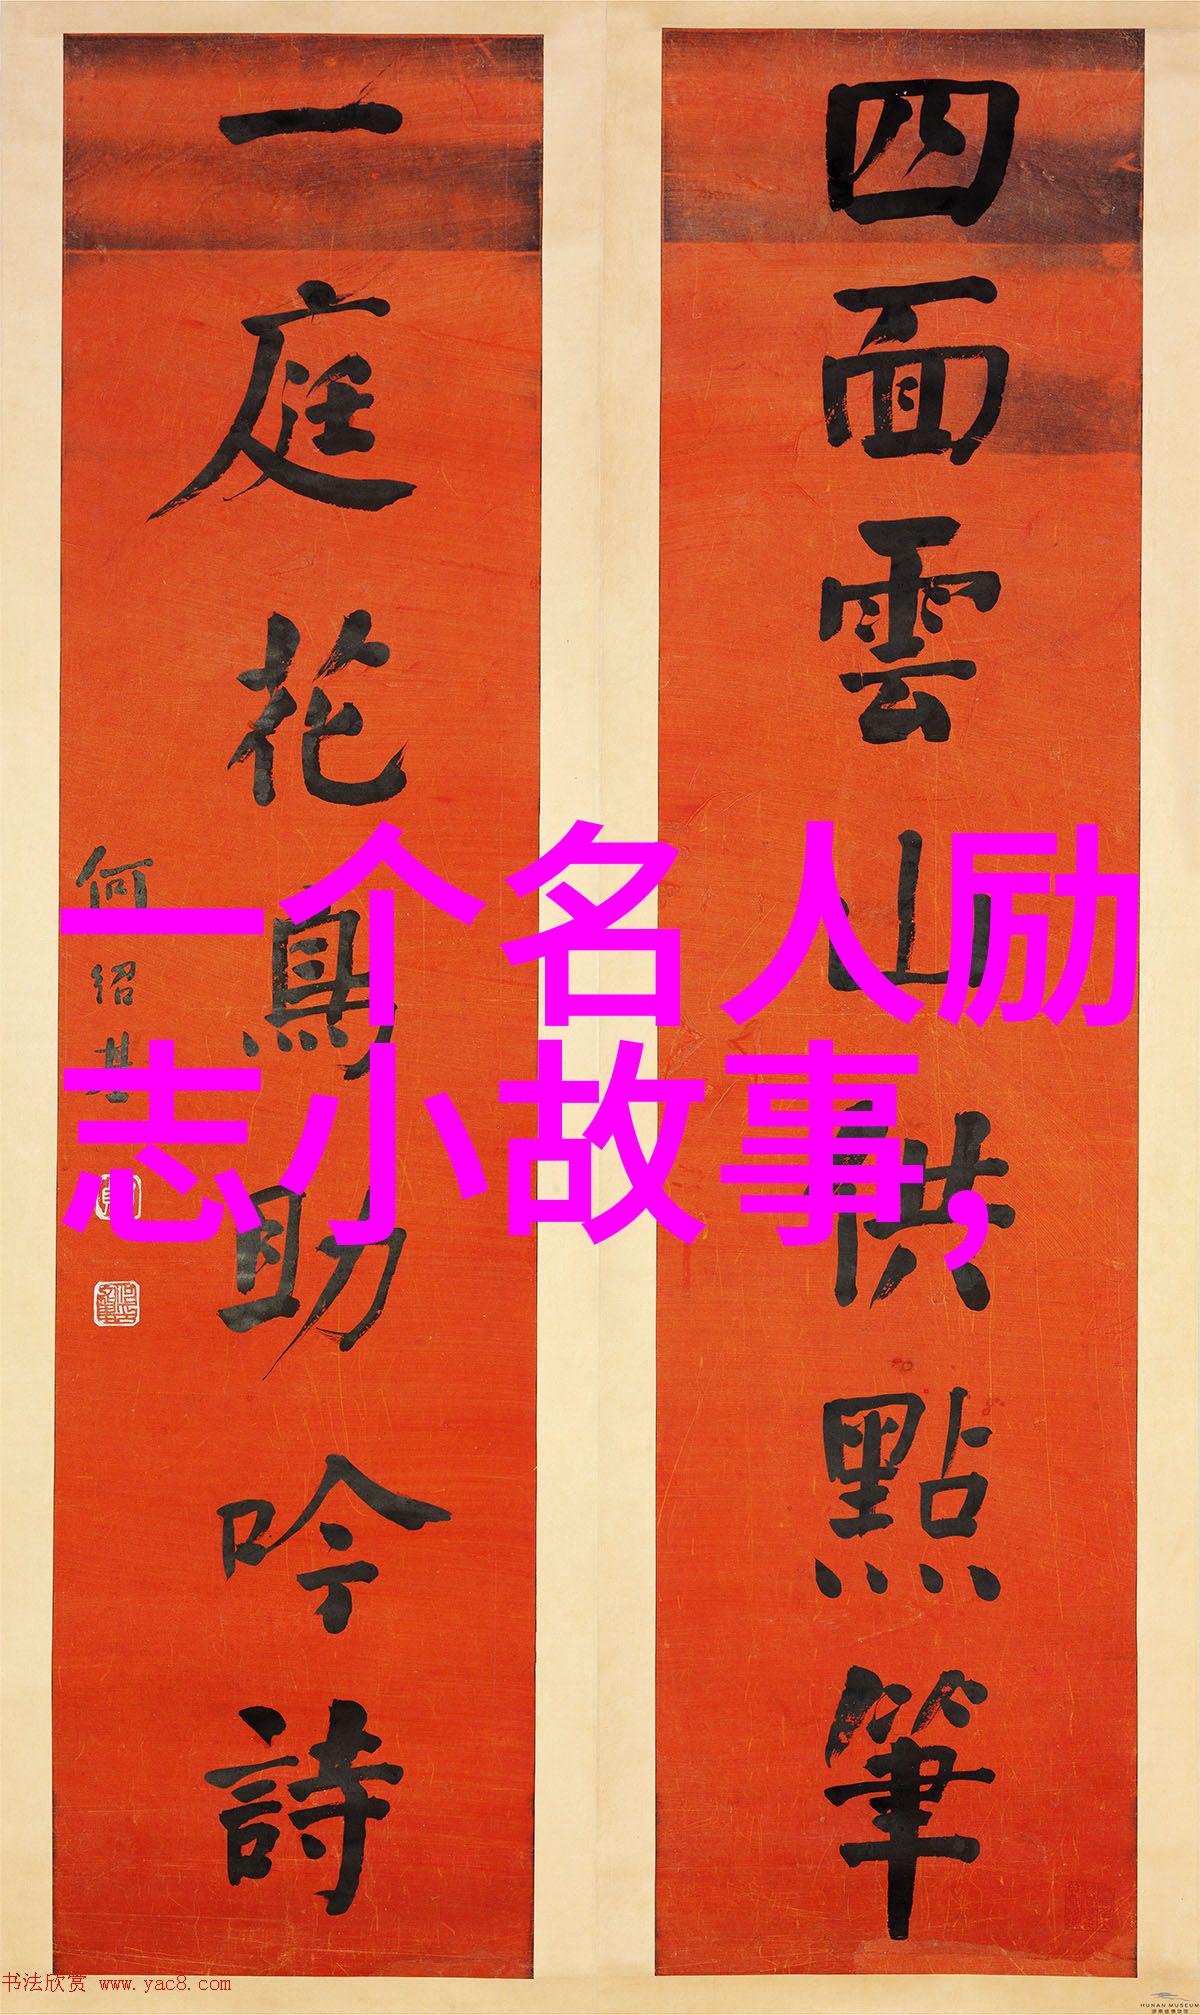 四面雲山供點筆
一庭花鳥助吟詩
何紹基
一个名人励
志小故事,
书法欣赏 www.yac8.com
HUNAN MUSEUM
湖南博物院